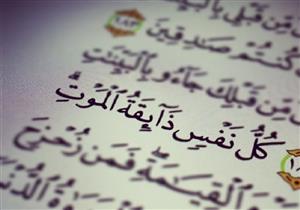 مِّن قَبْلِى بِٱلْبَيِّنَـٰتِ
كُنتُمْ صَـٰدِقِينَ ١٨٣
مِّن قَبْلِكَ جَآءُو بِٱلْبَيِّنَـٰتِ
كُلُّ نَفْسٍ ذَآئِقَةُ ٱلْمَوْتِ
ٱلْقِيَـٰمَةِ فَمَن زُحْزِحَ